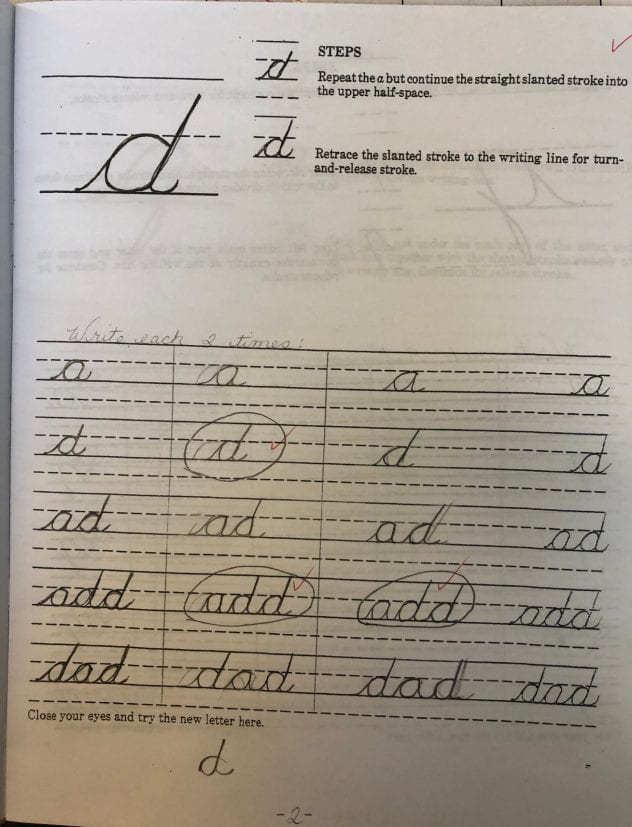 STEPS
d
Repeat the a but continue the straight slanted stroke into
the upper half-space.
d
d
Retrace the slanted stroke to the writing line for turn-
and-release stroke.
Write each 2 times:
a a a a
d d d d
ad ad ad ad
add add add add
dad dad dad dad
Close your eyes and try the new letter here.
d
-2-